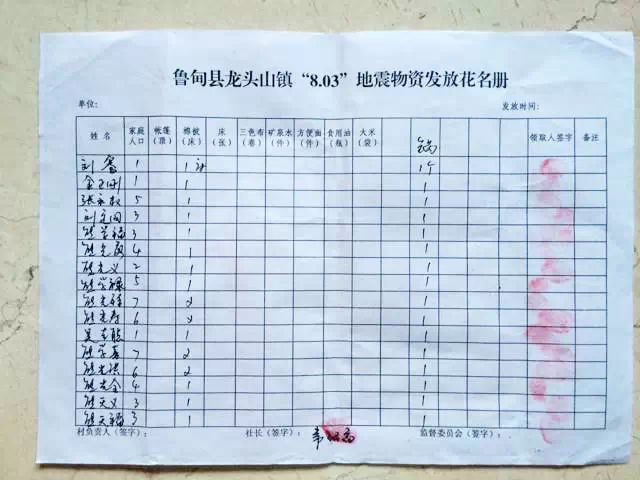 鲁甸县龙头山镇“8.03”地震物资发放花名册
单位: 发放时间:
姓名 家庭人口 帐篷(顶) 棉被(床) 床(张) 三色布(卷) 矿泉水(件) 方便面(件) 食用油(瓶) 大米(袋) 锅 领取人签字 备注
刘 1 1 1个
1 1 1
张 5 1 1
刘 3 1 1
熊 福 3 1 1
熊光 4 1 1
熊光义 2 1 1
熊学禄 5 1 1
熊光 7 2 1
熊光 6 2 1
1 1 1
熊学 7 2 1
熊光洪 6 2 1
熊光全 4 1 1
熊天义 3 1 1
熊天福 3 1 1
村负责人(签字): 社长(签字): 监督委员会(签字):